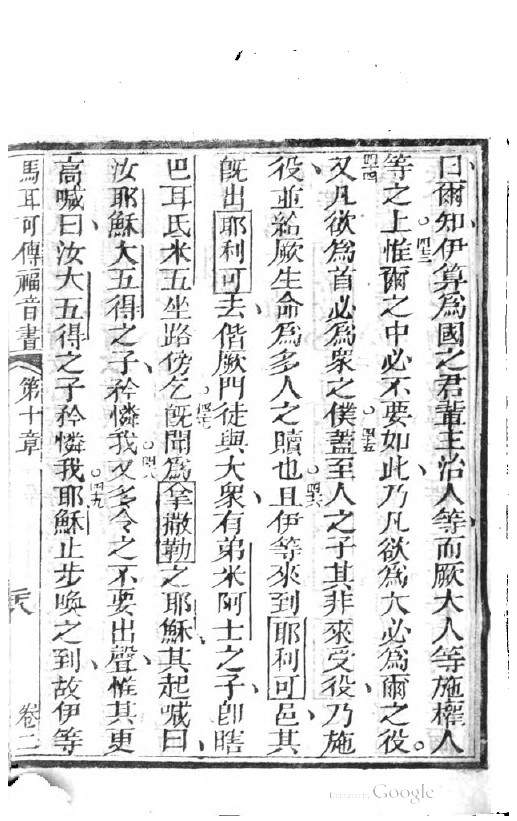 曰爾知伊算為國之君輩主治人等而厥大人等施權人
等之上。四三惟爾之中必不要如此、乃凡欲為大必為爾之役。
四四又凡欲為首必為衆之僕。四五蓋至人之子其非來受役、乃施
役、並給厥生命為多人之贖也。四六且伊等來到耶利可邑、其
旣出耶利可去、偕厥門徒與大衆、有弟米阿士之子、卽瞎
巴耳氏米五坐路傍乞。四七旣聞為拿撒勒之耶穌、其起喊曰、
汝耶穌大五得之子、矜憐我。四八又多令之不要出聲、惟其更
高喊曰、汝大五得之子矜憐我。四九耶穌止步喚之到、故伊等
馬耳可傳福音書 第十章 卷二
Google